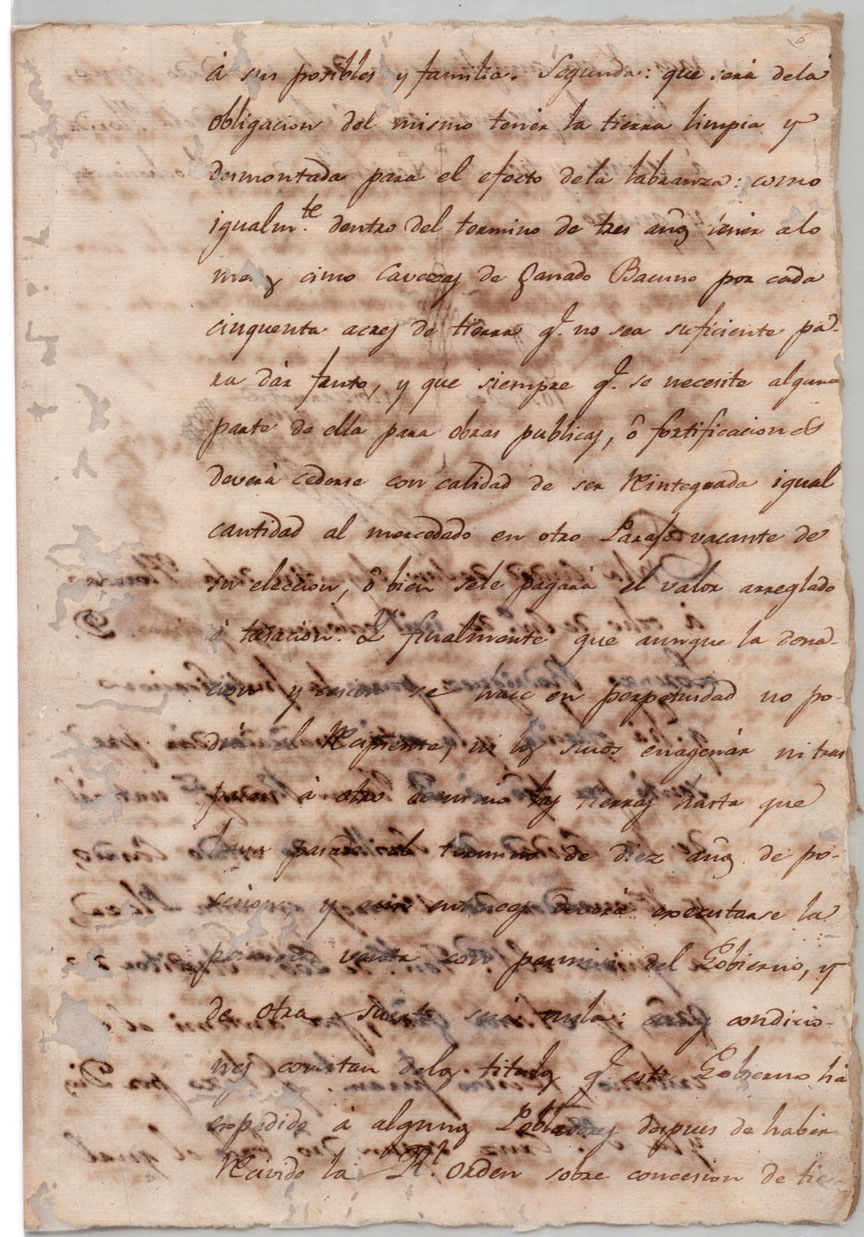 á sus posibles y familia. Segunda: que será dela
obligacion del mismo tener la tierra limpia y
desmontada para el efecto dela labranza: como
igualm.te dentro del termino de tres años tener alo
menos cinco Cavezas de Ganado Bacuno por cada
cinquenta acres de tierra q.e no sea suficiente pa-
ra dár fruto, y que siempre q.e se necesite alguna
parte de ella para obras publicas, ó fortificaciones
deverá cederse con calidad de ser Reintegrada igual
cantidad al mercedado en otro Parage vacante de
su eleccion, ó bien sele pagará el valor arreglado
á tasacion. Y finalmente que aunque la dona-
cion y se hace en perpetuidad no po-
drá el Recipiente, ni los suyos enagenár ni tras
pasar á otro dominio las tierras hasta que
haya pasado el termino de diez años de po-
sesion y aun entonces deverá executarse la
primera venta con permiso del Gobierno, y
de otra suerte será nula: cuyas condicio-
nes constan delos titulos q.e este Gobierno há
expedido á algunos Pobladores despues de haber
Recivido la R.l orden sobre concesion de tie-